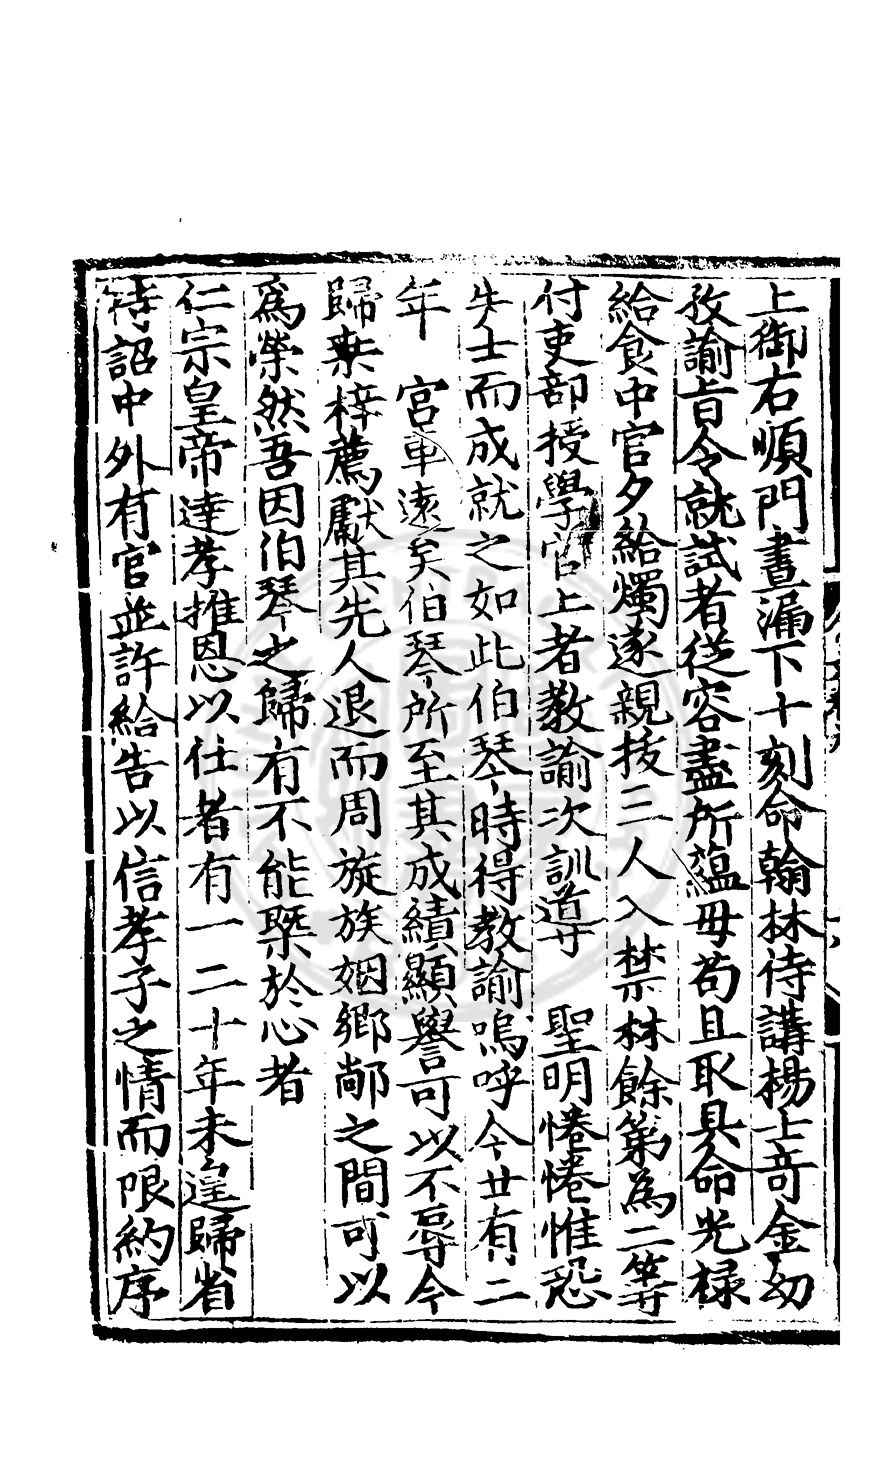 上御右順門晝漏下十刻命翰林侍講楊士奇金幼
孜諭旨令就試者從容盡所蘊毋苟且取具命光祿
給食中官夕給燭遂親拔三人入禁林餘第為二等
付吏部授學官上者教諭次訓導　聖明惓惓惟恐
失士而成就之如此伯琴時得教諭嗚呼今廿有二
年　宮車遠矣伯琴所至其成績顯譽可以不辱今
歸來梓薦獻其先人退而周旋族姻鄉鄰之間可以
為榮然吾因伯琴之歸有不能槩於心者
仁宗皇帝達孝推恩以仕者有一二十年未遑歸省
特詔中外有官並許給告以信孝子之情而限約序